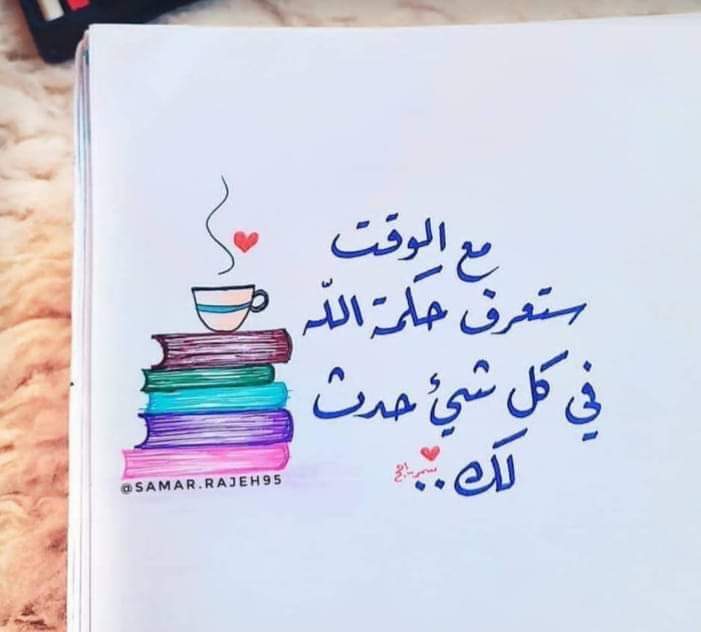 مع الوقت
ستعرف حكمة الله
في كل شيئ حدث
لك..
سمر راجح
@SAMAR.RAJEH95